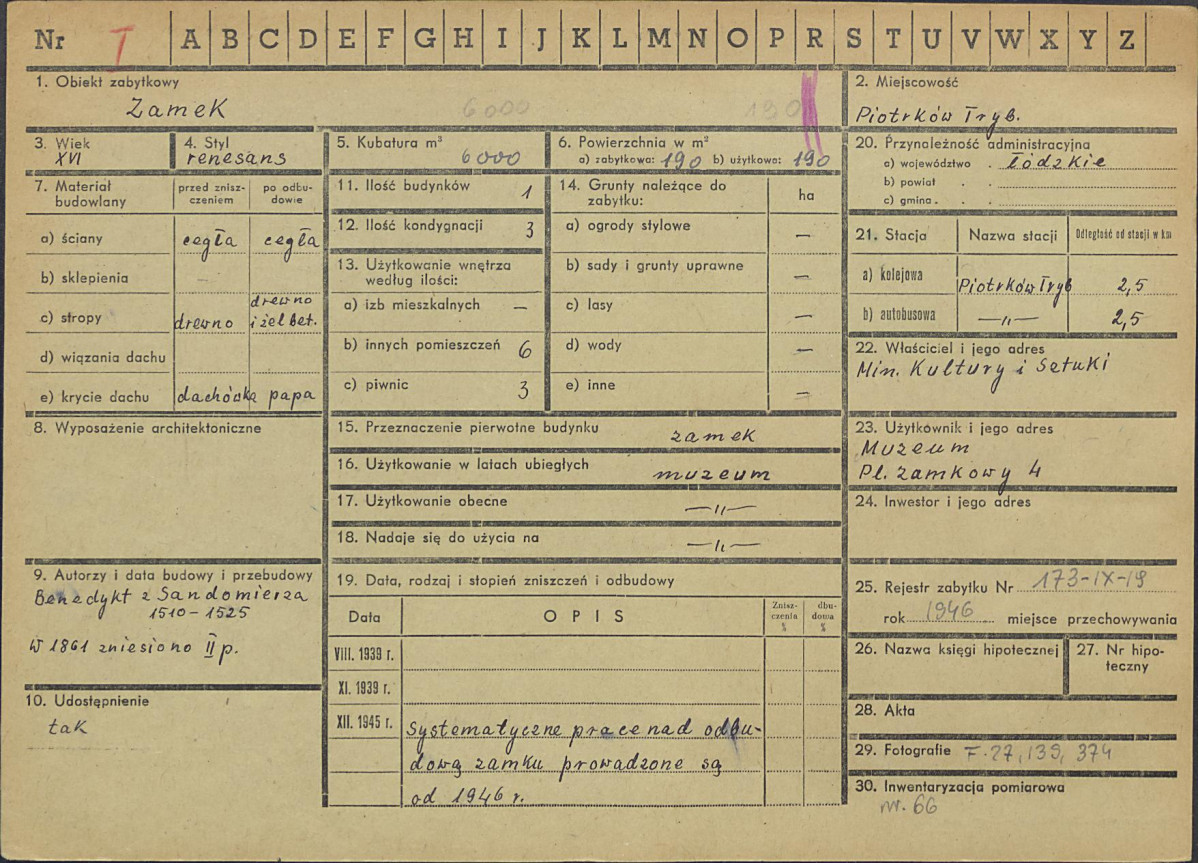 Nr I A B C D E F G H I J K L M N O P R S T U V W X Y Z
1. Obiekt zabytkowy
Zamek 6000 190
2. Miejscowość
Piotrków Tryb.
3. Wiek
XVI
4. Styl
renesans
5. Kubatura m³
6000
6. Powierzchnia w m²
a) zabytkowa: 190 b) użytkowa: 190
7. Materiał budowlany
przed znisz-
czeniem
po odbu-
dowie
a) ściany cegła cegła
b) sklepienia —
c) stropy drewno drewno
i żelbet.
d) wiązania dachu
e) krycie dachu dachówka papa
8. Wyposażenie architektoniczne
9. Autorzy i data budowy i przebudowy
Benedykt z Sandomierza
1510-1525
W 1861 zniesiono II p.
10. Udostępnienie
tak
11. Ilość budynków 1
12. Ilość kondygnacji 3
13. Użytkowanie wnętrza
według ilości:
a) izb mieszkalnych —
b) innych pomieszczeń 6
c) piwnic 3
14. Grunty należące do
zabytku:
ha
a) ogrody stylowe —
b) sady i grunty uprawne —
c) lasy —
d) wody —
e) inne —
15. Przeznaczenie pierwotne budynku zamek
16. Użytkowanie w latach ubiegłych muzeum
17. Użytkowanie obecne —"—
18. Nadaje się do użycia na —"—
19. Data, rodzaj i stopień zniszczeń i odbudowy
Data OPIS
Znisz-
czenia
%
dbu-
dowa
%
VIII. 1939 r.
XI. 1939 r.
XII. 1945 r. Systematyczne prace nad odbu-
dową zamku prowadzone są
od 1946 r.
20. Przynależność administracyjna
a) województwo . łódzkie
b) powiat . .
c) gmina . .
21. Stacja Nazwa stacji Odległość od stacji w km
a) kolejowa Piotrków Tryb 2,5
b) autobusowa —"— 2,5
22. Właściciel i jego adres
Min. Kultury i Sztuki
23. Użytkownik i jego adres
Muzeum
Pl. Zamkowy 4
24. Inwestor i jego adres
25. Rejestr zabytku Nr 173-IX-19
rok 1946 miejsce przechowywania
26. Nazwa księgi hipotecznej
27. Nr hipo-
teczny
28. Akta
29. Fotografie F-27, 139, 374
30. Inwentaryzacja pomiarowa
nr. 66